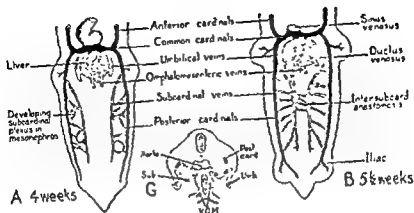 Anterior cardinals
Common cardinals
Umbilical veins
Omphalomesenteric veins
Subcardinal veins
Posterior cardinals
Liver
Developing
subcardinal
plexus in
mesonephros
Sinus
venosus
Ductus
venosus
Intersubcard
anastomosis
Iliac
Aorta
Sub
Post
card
Umb
A 4 weeks
G
B 5½ weeks